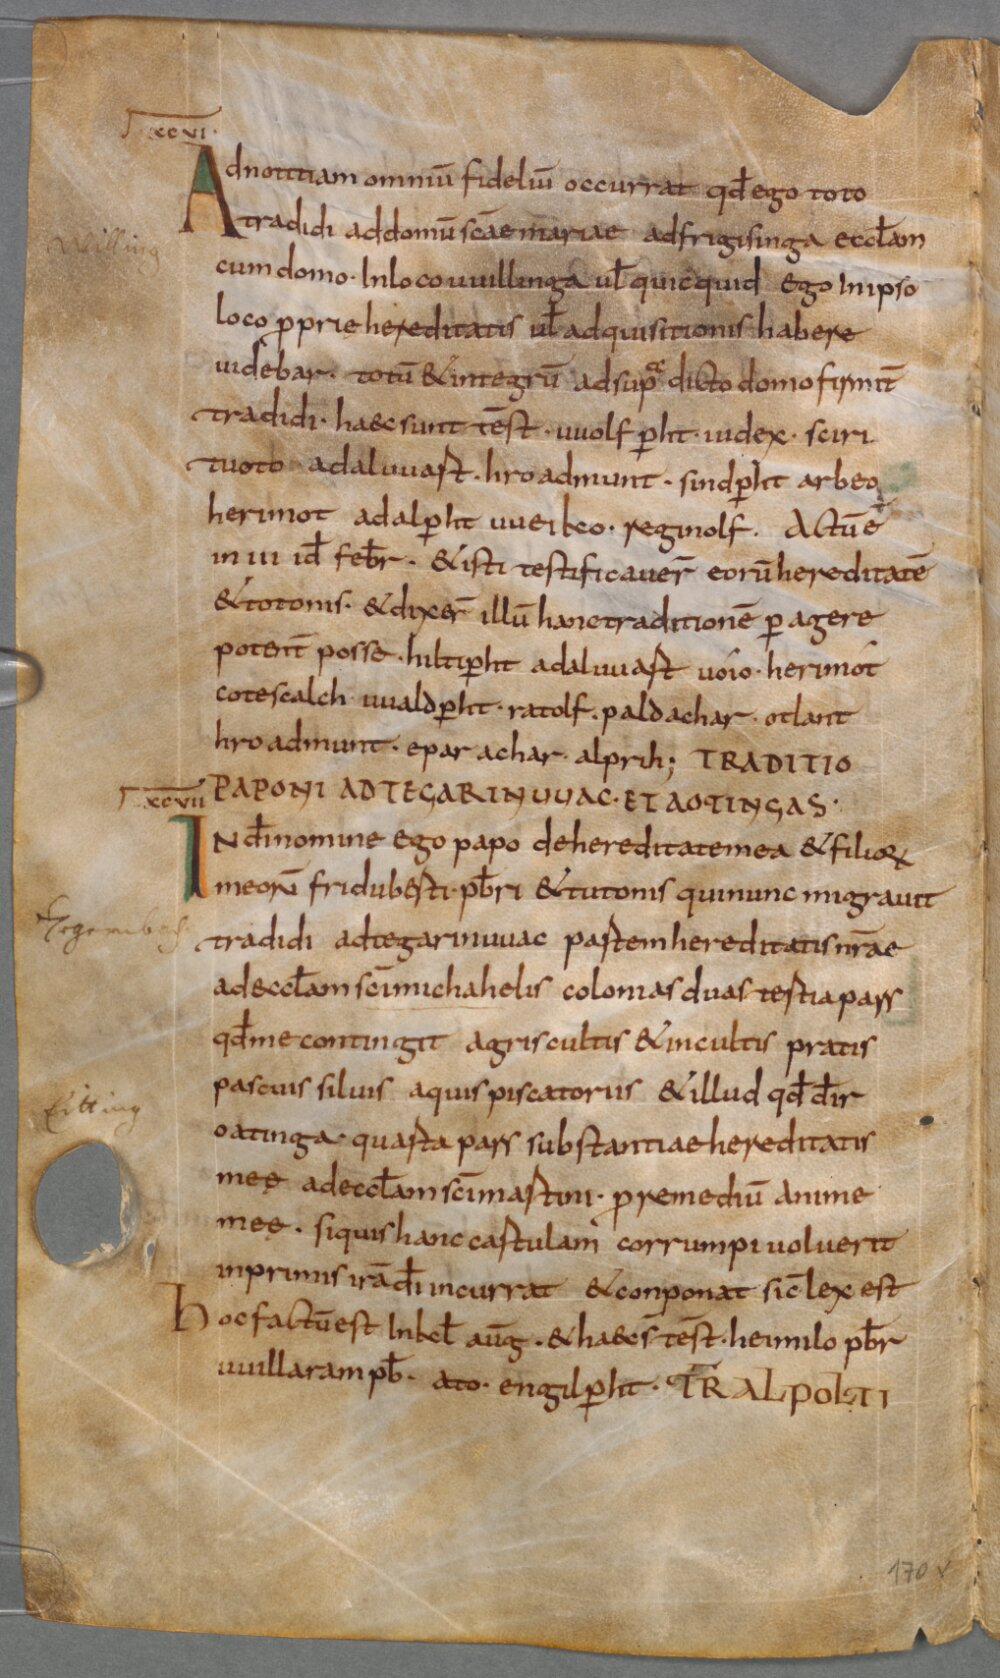 xcvi.
Adnotitiam omniū fideliū occurrat qđ ego toto
tradidi addomū scāe mariae adfrigisinga eccłam
Willing
cumdomo. Inloco uuillinga uł quicquid ego Inipso
loco proprie hereditatis uł adquisitionis habere
uidebar. totū &integrū adsupᵃ dicto domo firmit̄
tradidi. haec sunt tēst. uuolfp̱ht. iudex. sciri
tuoto adaluuast. hroadmunt. sindp̱ht arbeo
herimot adalp̱ht uueibeo. reginolf. Actū ē
in iii id̄ febr̄. &isti testificauer̄ eorū hereditatē
&totonis. &dixer̄ illū hanc traditionē p̱agere
potent̄ posse. hiltip̱ht adaluuast uoio. herimot
cotescalch. uualdp̱ht. ratolf. paldachar. otlant
hroadmunt. eparachar. alprih; TRADITIO
xcvii PAPONI ADTEGARINUUAC. ET AOTINGAS.
INđi nomine ego papo dehereditatemea &filioꝝ
meorū fridubesti. pb̄ri &tutonis quinunc migrauit
Tegernbach
tradidi adtegarinuuac partem hereditatis nr̄ae
adeccłam scī michahelis colonias duas tertia pars
qđme contingit agris cultis &incultis pratis
pascuis siluis aquis piscatoriis &illud qđ dr̄
Eitting
oatinga. quarta pars substantiae hereditatis
mee adeccłam scī martini. p̱remediū anime
mee. siquis hanc cartulam corrumpi uoluerit
inprimis irā đi incurrat &conponat sic̄ lex est
hoc factū est Inkł aūg. &haec s̄ tēst. heimilo pb̄r
uuillaram pb̄. ato. engilp̱ht. TR ALPOLTI
170 v